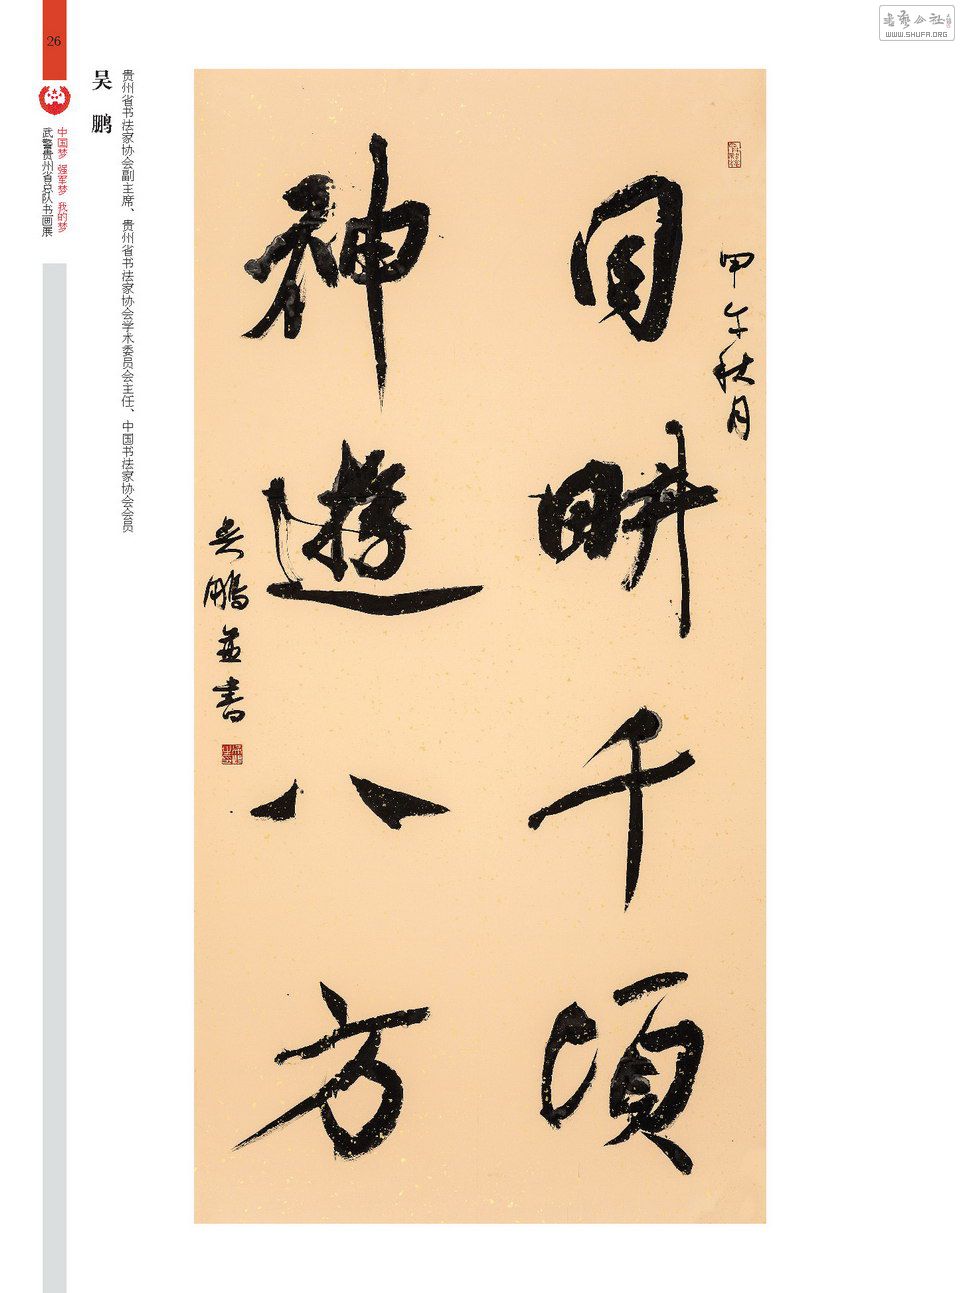 26
中国梦 强军梦 我的梦
武警贵州省总队书画展
吴 鹏
贵州省书法家协会副主席、贵州省书法家协会学术委员会主任、中国书法家协会会员
甲午秋月
目耕千頃
神遊八方
吴鵬並書
WWW.SHUFA.ORG